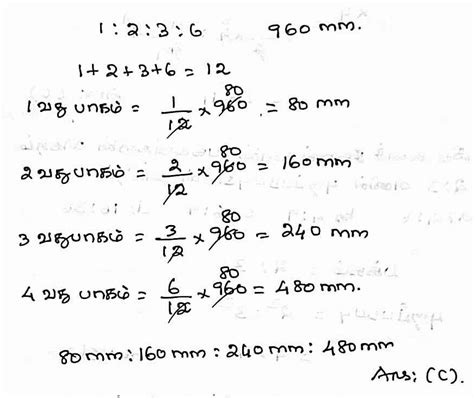 1 : 2 : 3 : 6 960 mm.
1 + 2 + 3 + 6 = 12
1 வது பாகம் = 1/12 × 960 80 = 80 mm
2 வது பாகம் = 2/12 × 960 80 = 160 mm
3 வது பாகம் = 3/12 × 960 80 = 240 mm
4 வது பாகம் = 6/12 × 960 80 = 480 mm.
80 mm : 160 mm : 240 mm : 480 mm
Ans: (C).